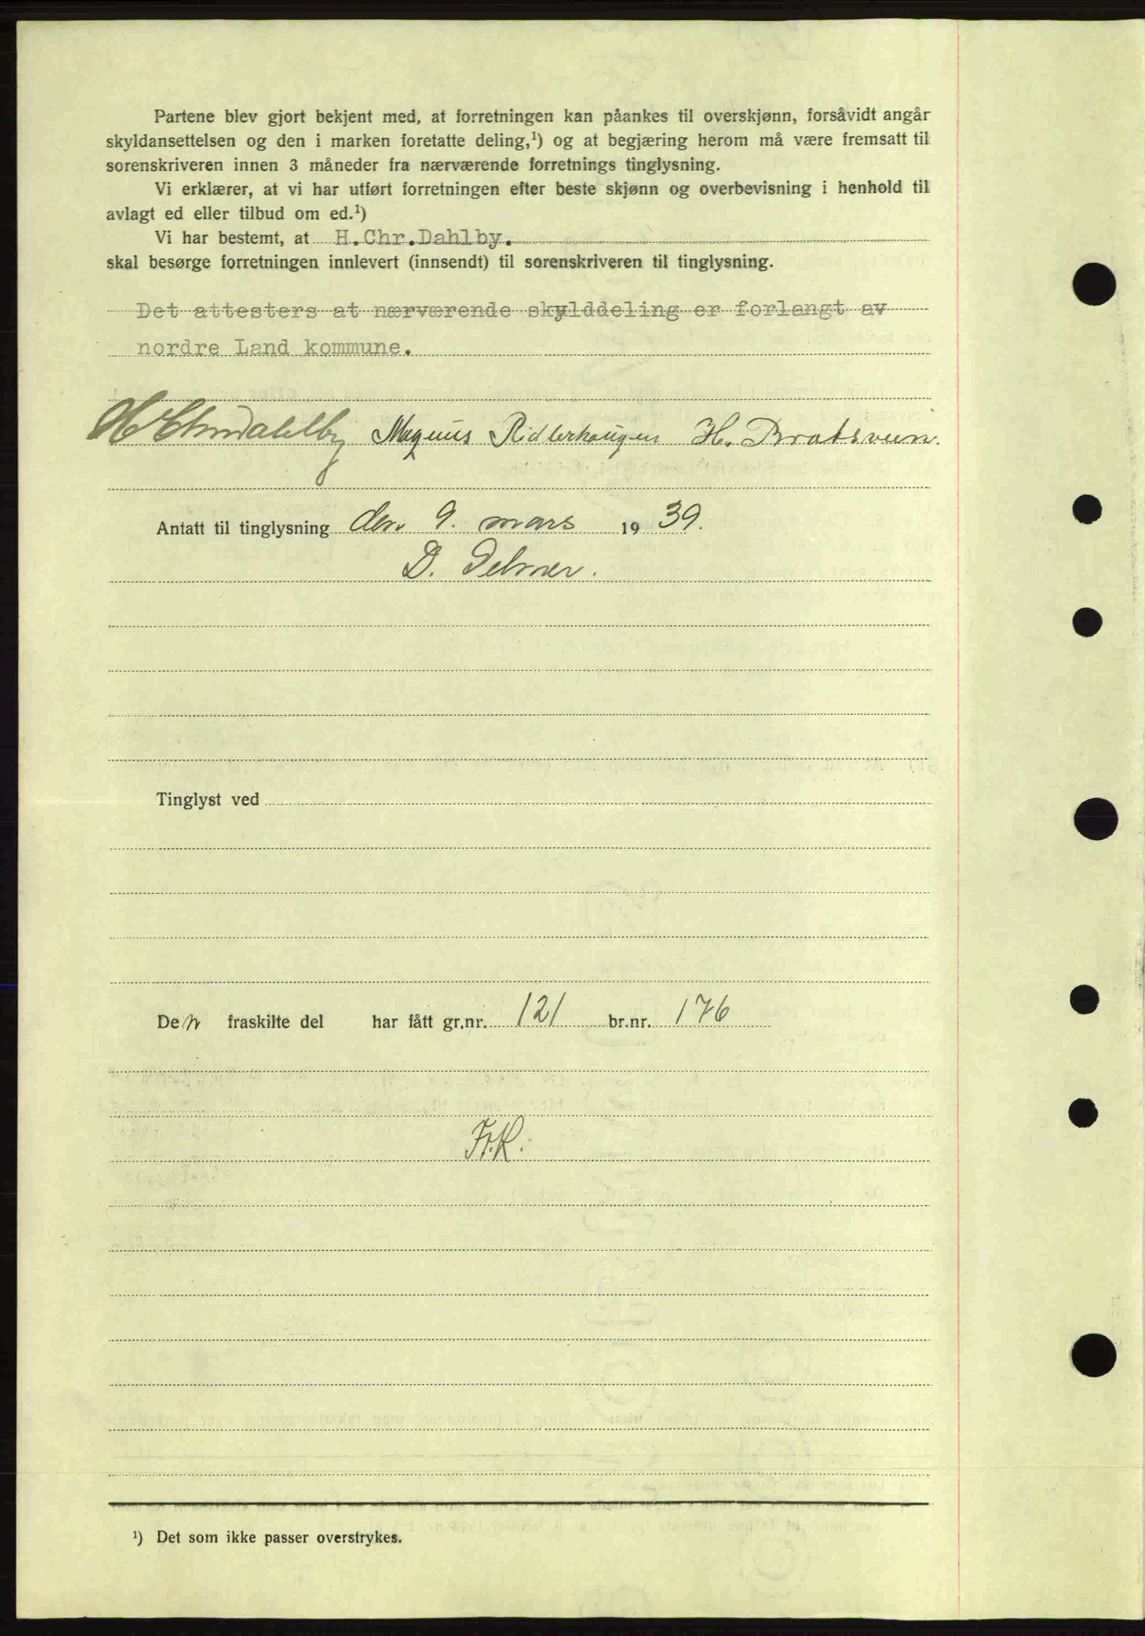 Partene blev gjort bekjent med, at forretningen kan påankes til overskjønn, forsåvidt angår
skyldansettelsen og den i marken foretatte deling,¹) og at begjæring herom må være fremsatt til
sorenskriveren innen 3 måneder fra nærværende forretnings tinglysning.
Vi erklærer, at vi har utført forretningen efter beste skjønn og overbevisning i henhold til
avlagt ed eller tilbud om ed.¹)
Vi har bestemt, at H.Chr.Dahlby.
skal besørge forretningen innlevert (innsendt) til sorenskriveren til tinglysning.
Det attesters at nærværende skylddeling er forlangt av
nordre Land kommune.
H Chr Dahlby Magnus H. Bratsveen.
Antatt til tinglysning den 9. mars 1939.
D.
Tinglyst ved
Den fraskilte del har fått gr.nr. 121 br.nr. 176
Fr.K.
¹) Det som ikke passer overstrykes.